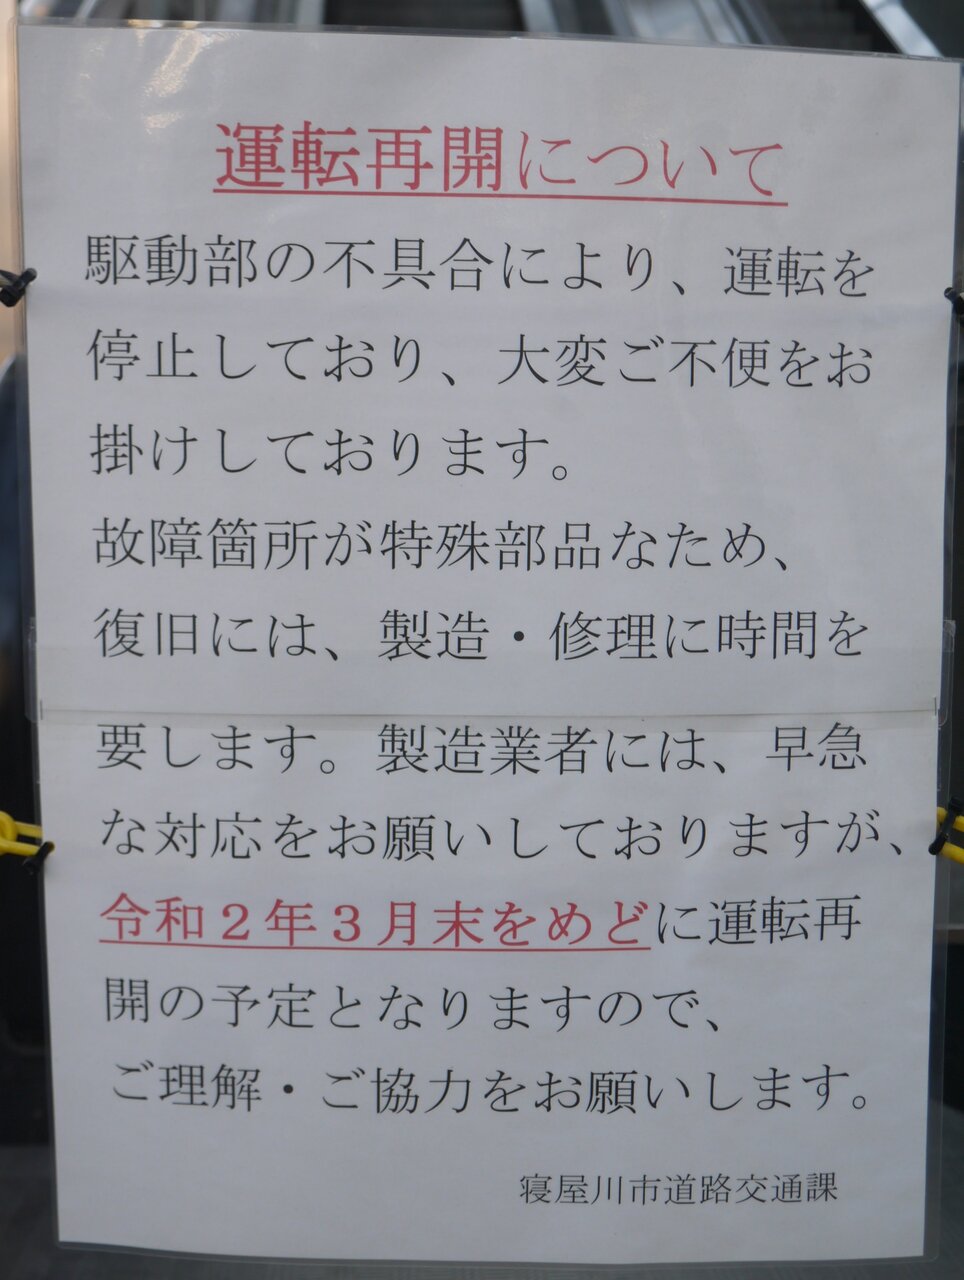 運転再開について
駆動部の不具合により、運転を
停止しており、大変ご不便をお
掛けしております。
故障箇所が特殊部品なため、
復旧には、製造・修理に時間を
要します。製造業者には、早急
な対応をお願いしておりますが、
令和２年３月末をめどに運転再
開の予定となりますので、
ご理解・ご協力をお願いします。
寝屋川市道路交通課